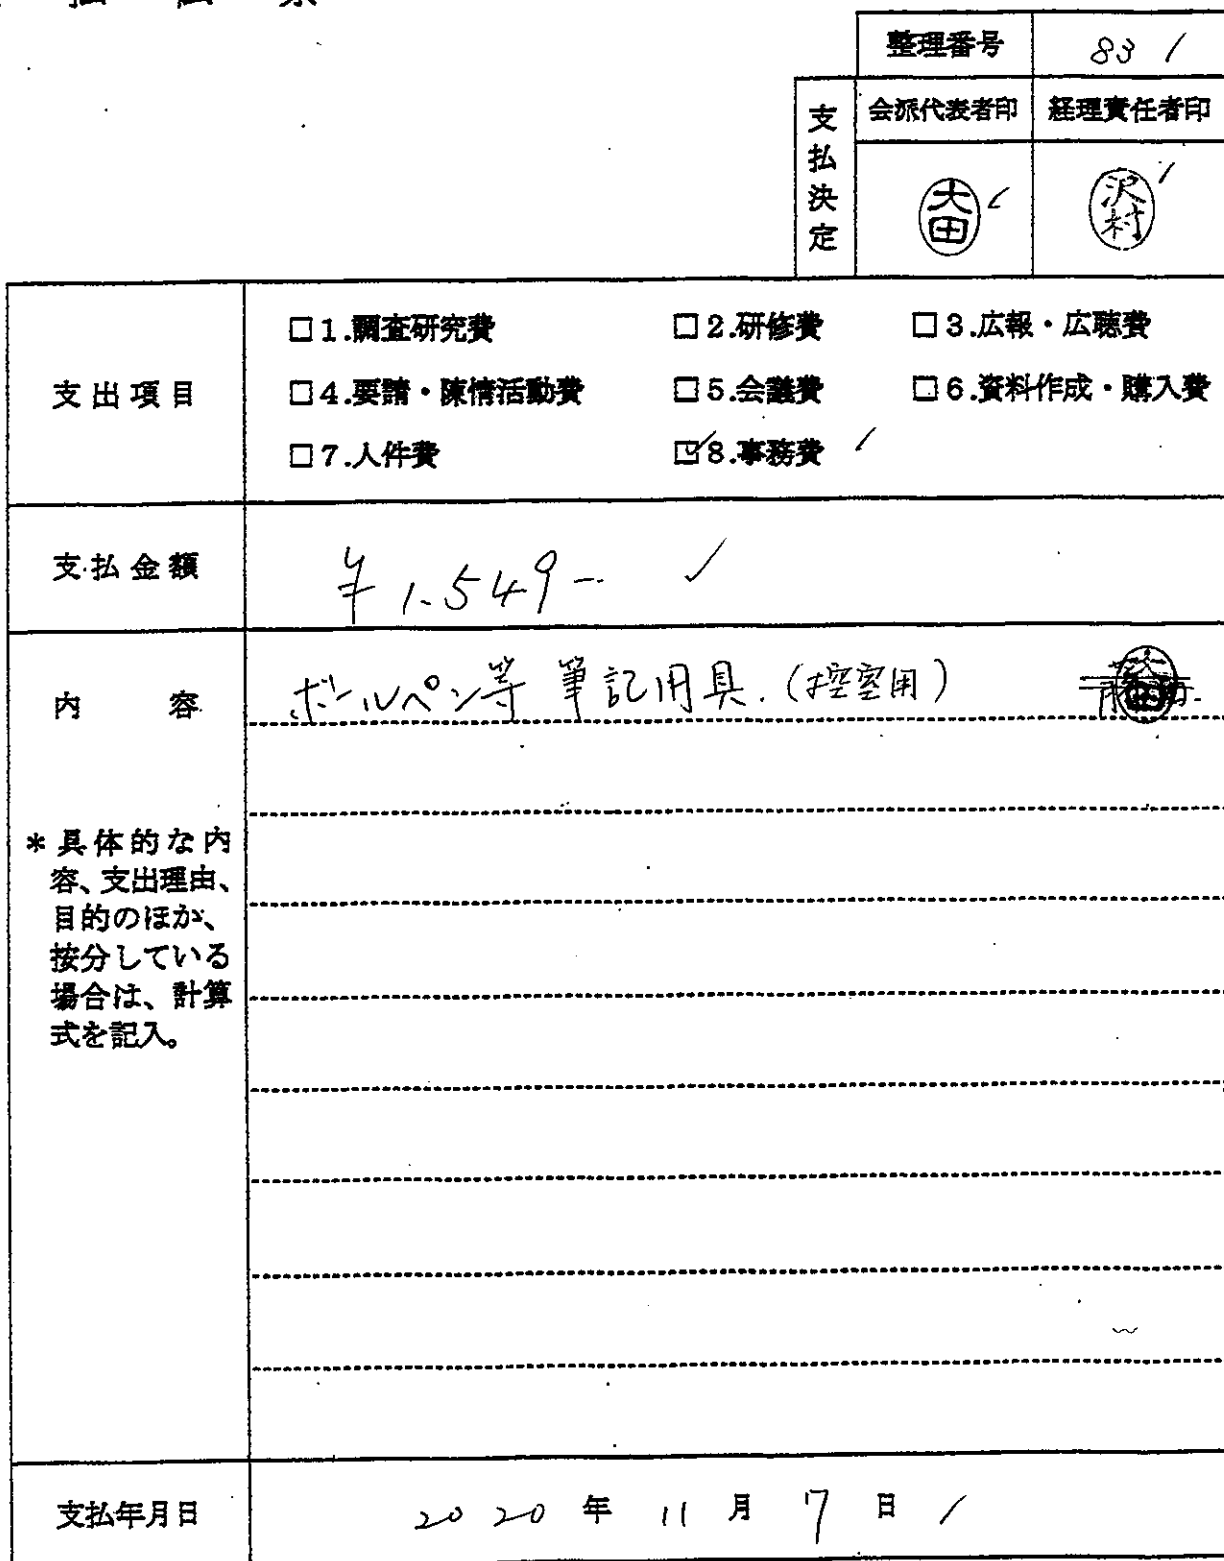 整理番号 83
支払決定
会派代表者印 経理責任者印
大田 沢村
支出項目
□1.調査研究費 □2.研修費 □3.広報・広聴費
□4.要請・陳情活動費 □5.会議費 □6.資料作成・購入費
□7.人件費 ☑8.事務費
支払金額 ¥1.549-
内容 ボールペン等 筆記用具.(控室用)
*具体的な内
容、支出理由、
目的のほか、
按分している
場合は、計算
式を記入。
支払年月日 2020年11月7日